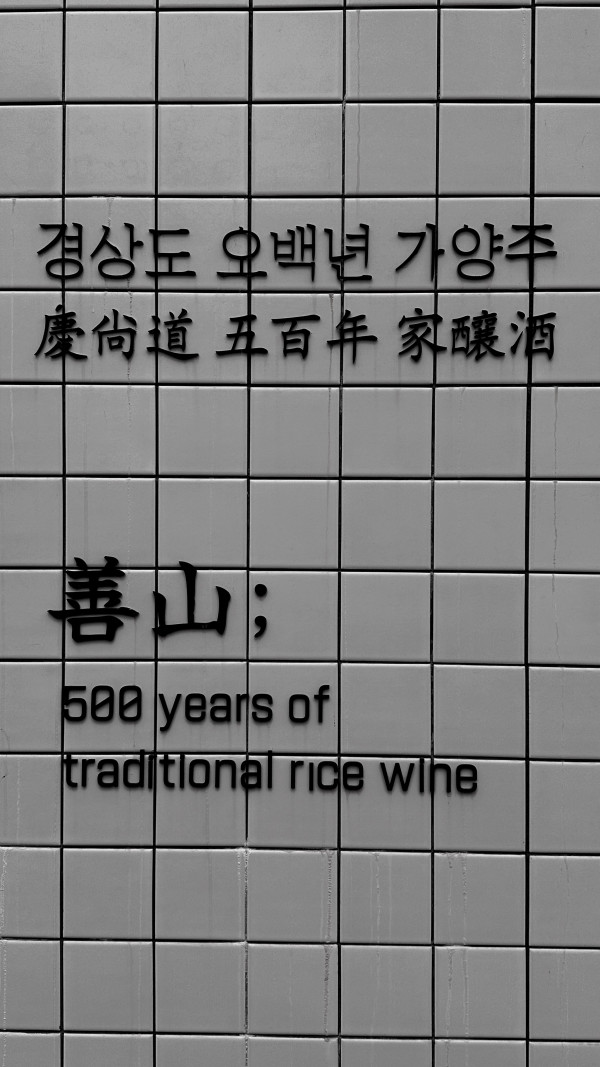 경상도 오백년 가양주
慶尙道 五百年 家釀酒
善山;
500 years of
traditional rice wine